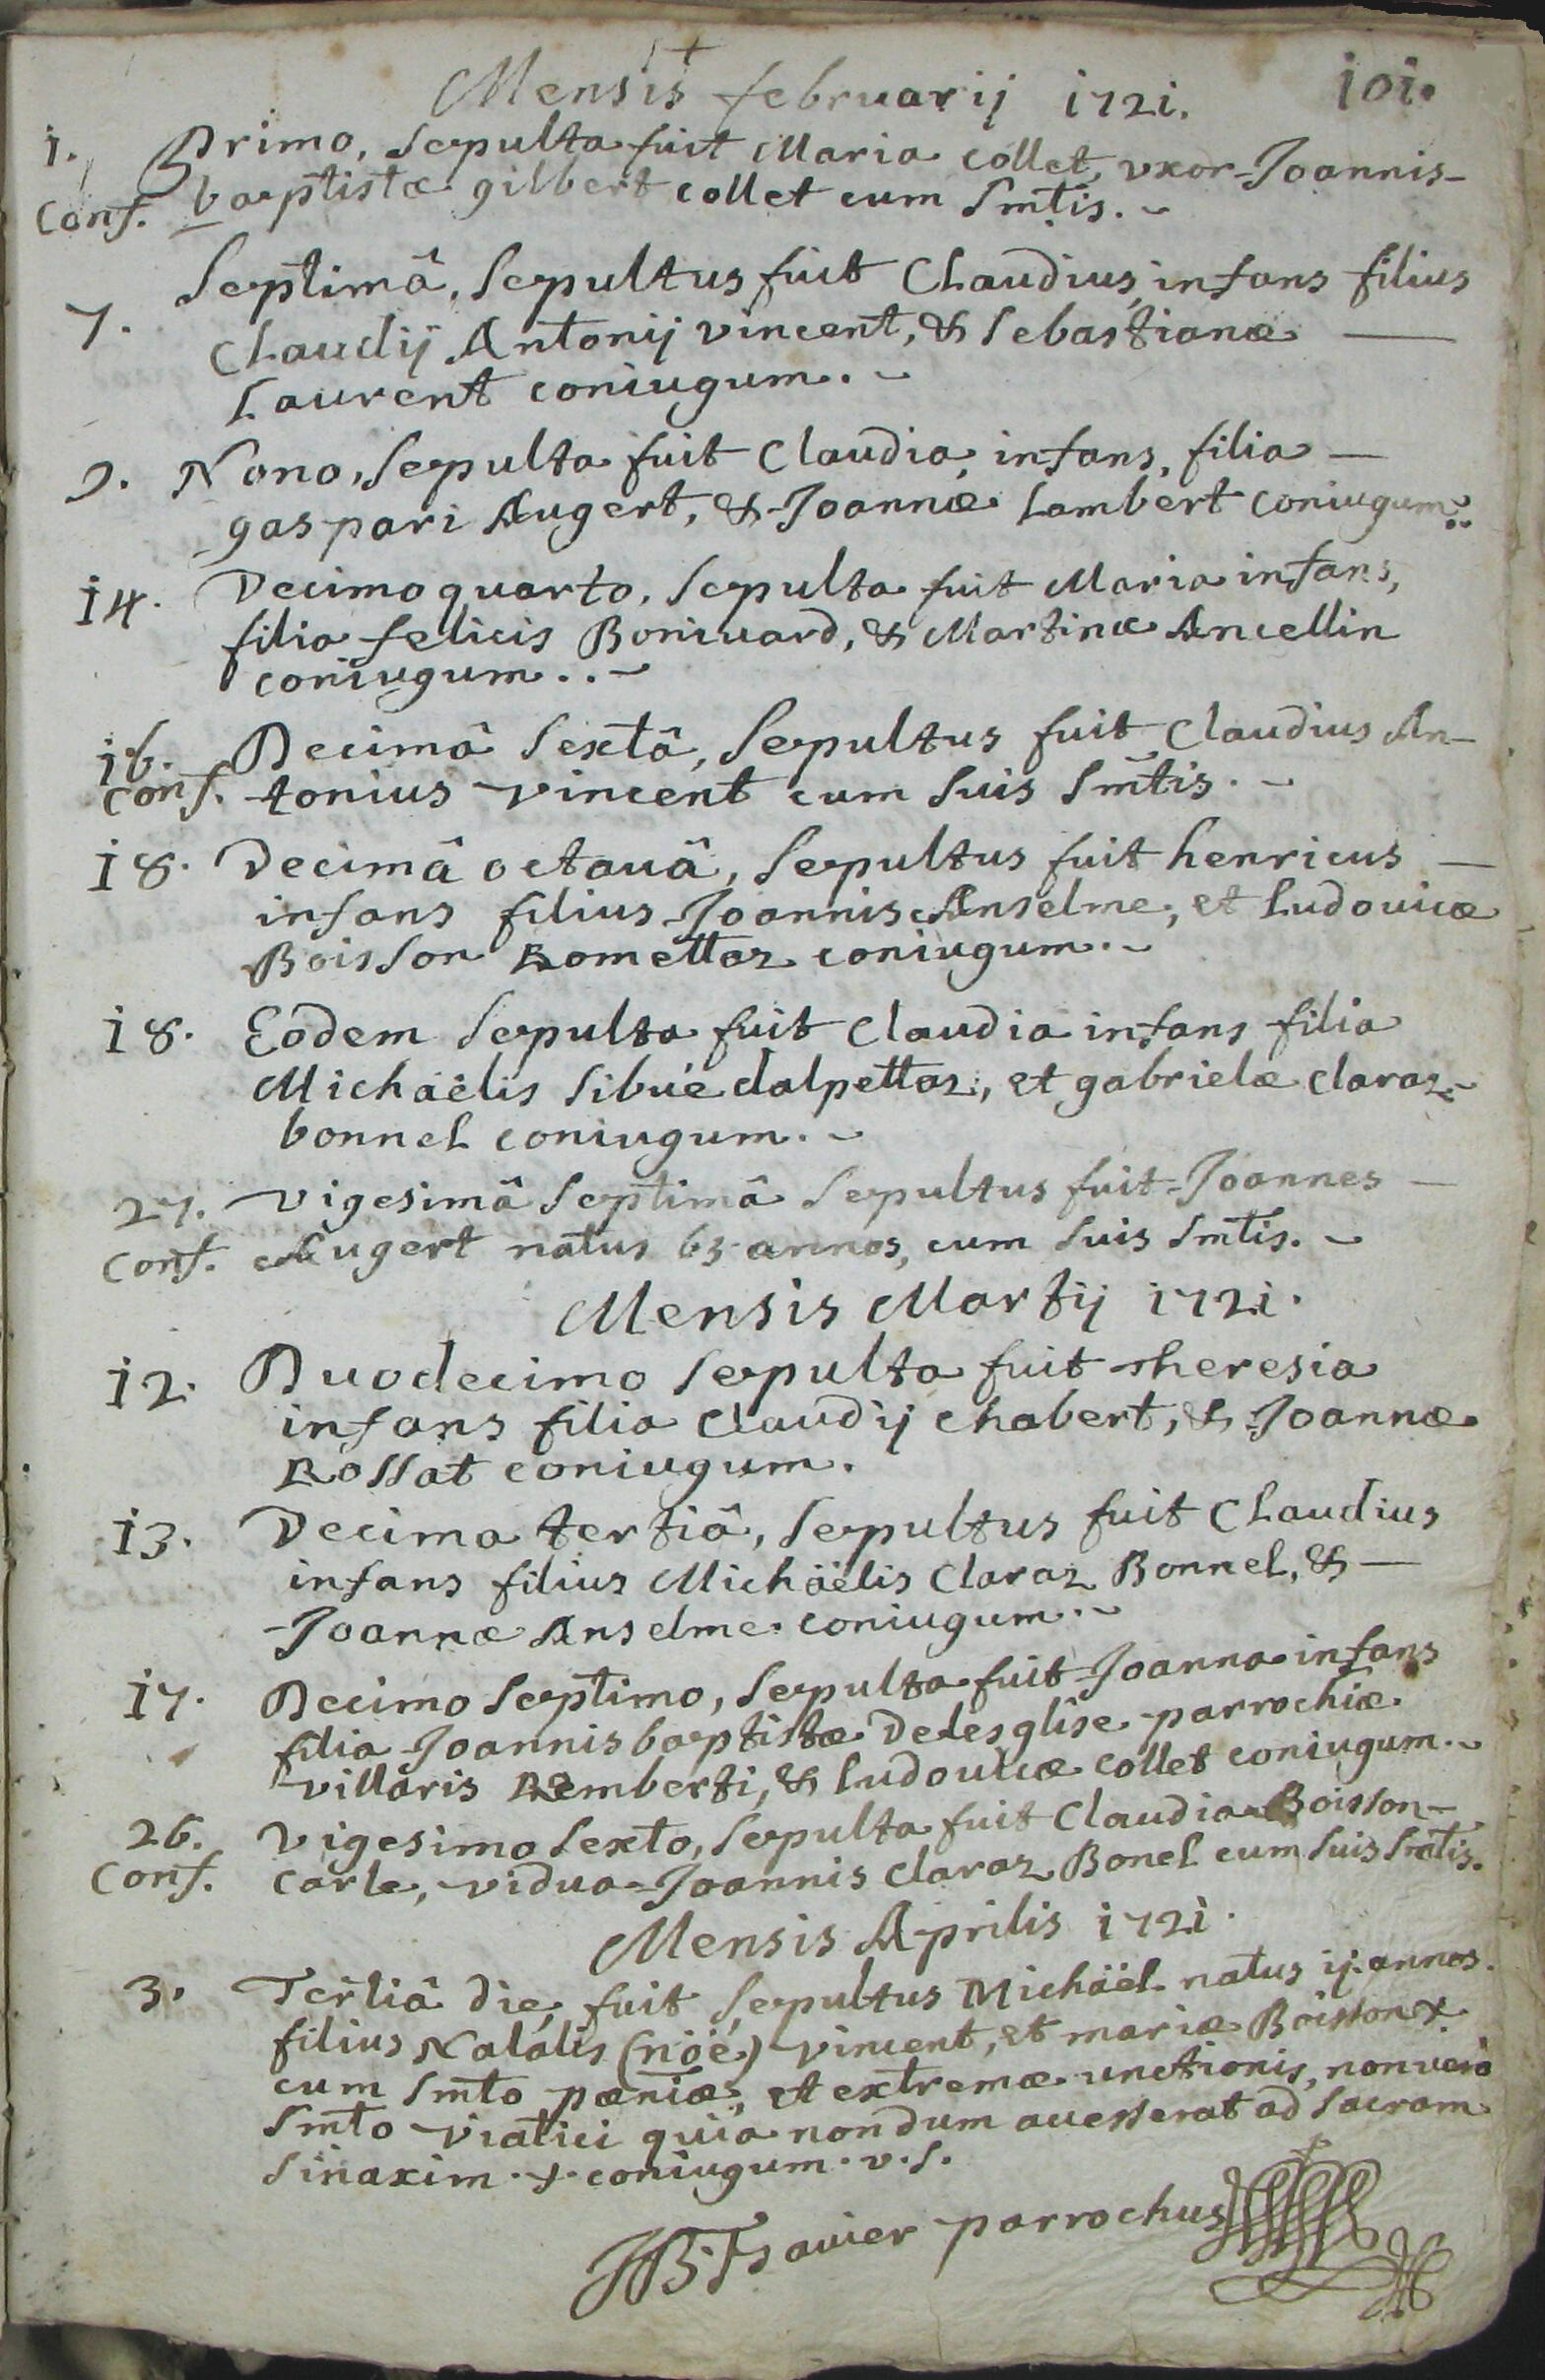 Mensis februarij 1721. 101.
1. Primo, Sepulta fuit Maria collet, vxor Joannis-
Conf. baptistæ gilbert collet cum Smtis.
7. Septimâ, Sepultus fuit Claudius, infans filius
Claudij Antonij vincent, & Sebastianæ —
Laurent coniugum.
9. Nono, Sepulta fuit Claudia, infans, filia —
gaspari Augert, & Joannæ Lambert coniugum.
14. Decimo quarto, Sepulta fuit Maria infans,
filia felicis Boniuard, & Martinæ Ancellin
coniugum..
16. Decimâ Sextâ, Sepultus fuit Claudius An-
Conf. tonius vincent cum suis Smtis.
18. Decimâ octauâ, Sepultus fuit henricus —
infans filius Joannis Anselme, et Ludouicæ
Boisson Romettaz coniugum.
18. Eodem Sepulta fuit Claudia infans filia
Michäelis Sibué dalpettaz, et gabrielæ claraz
bonnel coniugum.
27. vigesimâ Septimâ Sepultus fuit Joannes —
Conf. Augert natus 63 annos, cum suis Smtis.
Mensis Martij 1721.
12. Duodecimo Sepulta fuit theresia
infans filia Claudij chabert, & Joannæ
Rossat coniugum.
13. Decima tertiâ, Sepultus fuit Claudius
infans filius Michäelis Claraz Bonnel, & —
Joannæ Anselme coniugum.
17. Decimo Septimo, Sepulta fuit Joanna infans
filia Joannis baptistæ Delesglise parrochiæ
villaris Remberti, & Ludouicæ collet coniugum.
26. Vigesimo Sexto, Sepulta fuit Claudia Boisson-
Conf. Carle, vidua Joannis Claraz Bonel cum suis Smtis.
Mensis Aprilis 1721.
3. Tertiâ die, fuit Sepultus Michäel natus 11 annos.
filius Natalis (nöé) vincent, et mariæ Boisson +
cum Smto pæniæ, et extremæ unctionis, non verò
Smto viatici quia nondum accesserat ad Sacram
Sinaxim. + coniugum. v. s.
JB: parrochus